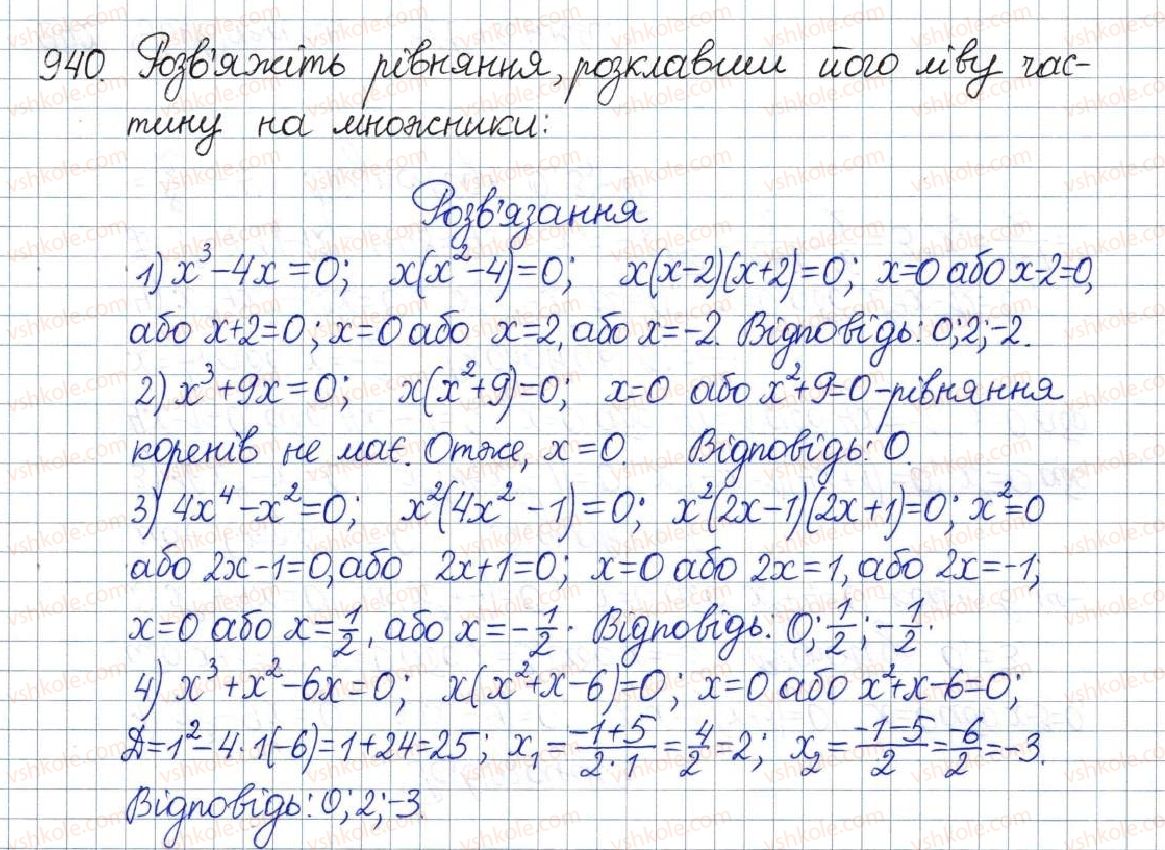 940. Розв'яжіть рівняння, розклавши його ліву час-
тину на множники:
Розв'язання
1) x³-4x=0; x(x²-4)=0; x(x-2)(x+2)=0; x=0 або x-2=0,
або x+2=0; x=0 або x=2, або x=-2. Відповідь: 0; 2; -2.
2) x³+9x=0; x(x²+9)=0; x=0 або x²+9=0-рівняння
коренів не має. Отже, x=0. Відповідь: 0.
3) 4x⁴-x²=0; x²(4x²-1)=0; x²(2x-1)(2x+1)=0; x²=0
або 2x-1=0, або 2x+1=0; x=0 або 2x=1, або 2x=-1;
x=0 або x=1/2, або x=-1/2. Відповідь: 0; 1/2; -1/2.
4) x³+x²-6x=0; x(x²+x-6)=0; x=0 або x²+x-6=0;
Д=1²-4·1(-6)=1+24=25; x₁=(-1+5)/(2·1)=4/2=2; x₂=(-1-5)/2=-6/2=-3.
Відповідь: 0; 2; -3.